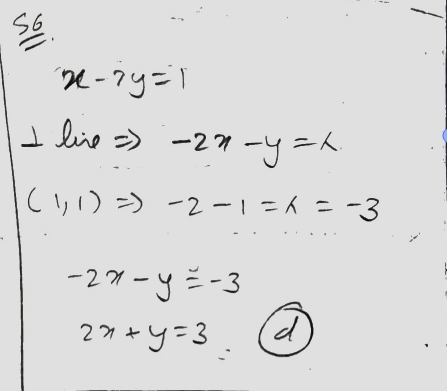 56.
x - 2y = 1
⊥ line ⇒ -2x - y = λ
(1,1) ⇒ -2 - 1 = λ = -3
-2x - y = -3
2x + y = 3. (d)